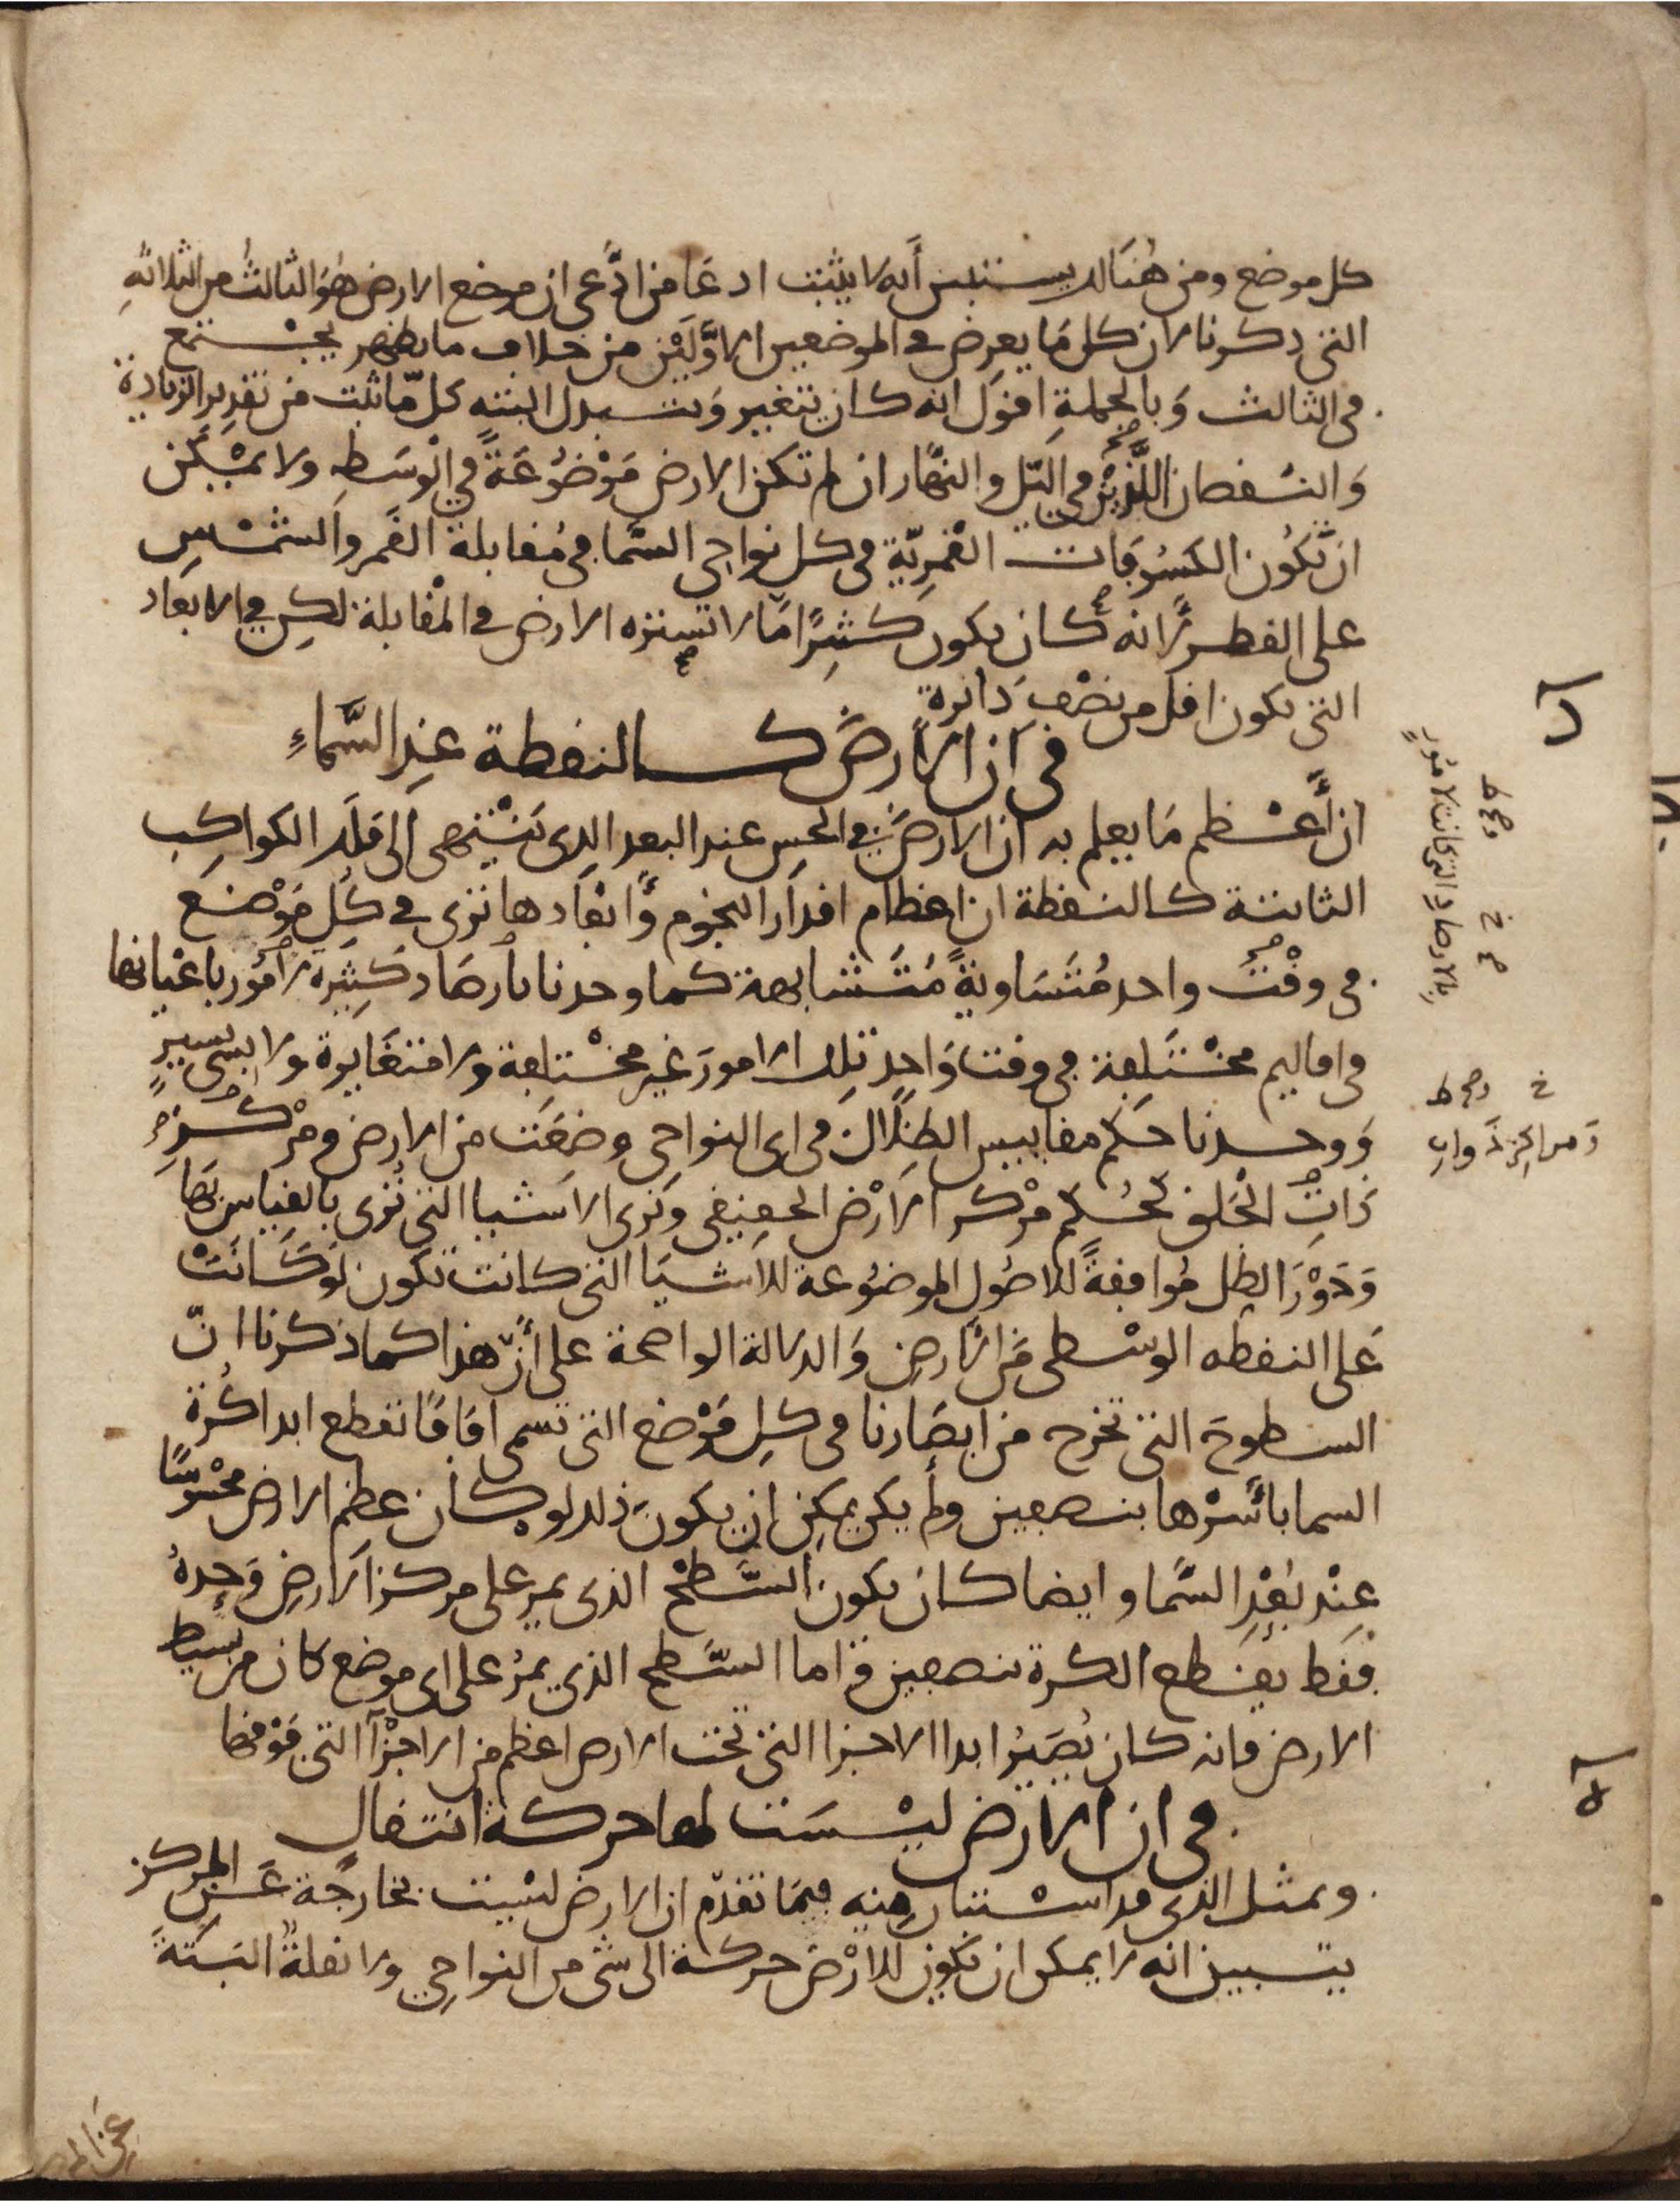 كل موضع ومن هُنَالك يستبين أنه لا يثبت ادعَا من ادَّعى ان موضع الارض هُوَ الثالثُ من الثلاثهِ
التى ذكرنا لان كل مَا يعرِض في الموضعين الاوَّلَيْن من خلاف ما يظهر يجْتمع
في الثالث وَبالجملةِ اقول انه كان يتغير وَيتبدل البته كل مّا ثبت من تقدير الزيادة
وَالنقصان اللّذَيْن في اليّل والنهَّار ان لم تكن الارض مَوْضُوْعَةً في الوسَطِ ولا يمْكن
ان تَّكُون الكسُوفات القمَرِيّة في كل نواحى السَّما في مُقابلة القَمر والشمْسِ
على القطر لأنه كان يكون كثيرًا مّا لا تستره الارض في المقابلة لكن في الابعاد
التى تكون اقل من نصْف دَائرة
في أن الأرضَ كالنقطة عند السَّماءِ
انّ أَعْظم مَا يعلم به أن الارضَ في الحس عند البعد الذى ينْتهى الى فلَك الكواكب
الثابتة كالنقطة ان اعظام اقدَار النجوم وَأبعَادها ترى في كُل مَوْضع
في وقْتٍ واحد مُتَسَاويةً مُتَشابهة كما وجدنا بأرصَاد كَثِيرة لأمُور باعْيانها
في اقاليم مخْتَلِفة في وقت وَاحِد تلك الامورَ غير مخْتلِفة ولا متغَايرة ولا بشى يسير
وَوجدنا حكم مقاييس الظِلَال في اى النواحى وضِعَت من الارض ومرْكزِ
ذاتِ الْحَلَق كحُكم مرْكز الأرْض الحقيقي وَترى الاشيا التى تُرى بالقياس بهَا
وَدَوْرَ الظِل مُوافِقةً للاصُول الموضوُعة للاشيَا التى كانت تكون لوكَانَتْ
عَلى النقطه الوسْطى مَن الارض وَالدلالة الواضحة على أنّ هذا كما ذكرنا انّ
السطوحَ التى تخرج من ابصَارنا في كل مَوْضع التى تسمى آفَاقًا تقطع ابدا كُرة
السما بأسْرها بنصفين ولم يكن يمكن ان يكونَ ذلك لو كان عظم الارض محْسُوسًا
عِنْد بُعْدِ السَّما وايضا كان يكون السَّطح الذى يمر على مركز الارض وَحِدهُ
فقط يقطع الكرة بنصفين فاما السَّطح الذي يمرُ على اى موضع كان من بسيط
الارض فانه كان يُصَيرُ ابدا الاجزا التى تحت الارض اعظم من الاجزَآ التى فَوْقها
في ان الارض ليسَت لها حركة انتقال
وبمثل الذى قد اسْتبان منه فيمَا تقدّم ان الارض ليست بخارجَة عَن المركز
يتبين انه لا يمكن ان تكون للارْض حركة الى شى من النواحي ولا نقلةٌ البَتّةَ
د
ه